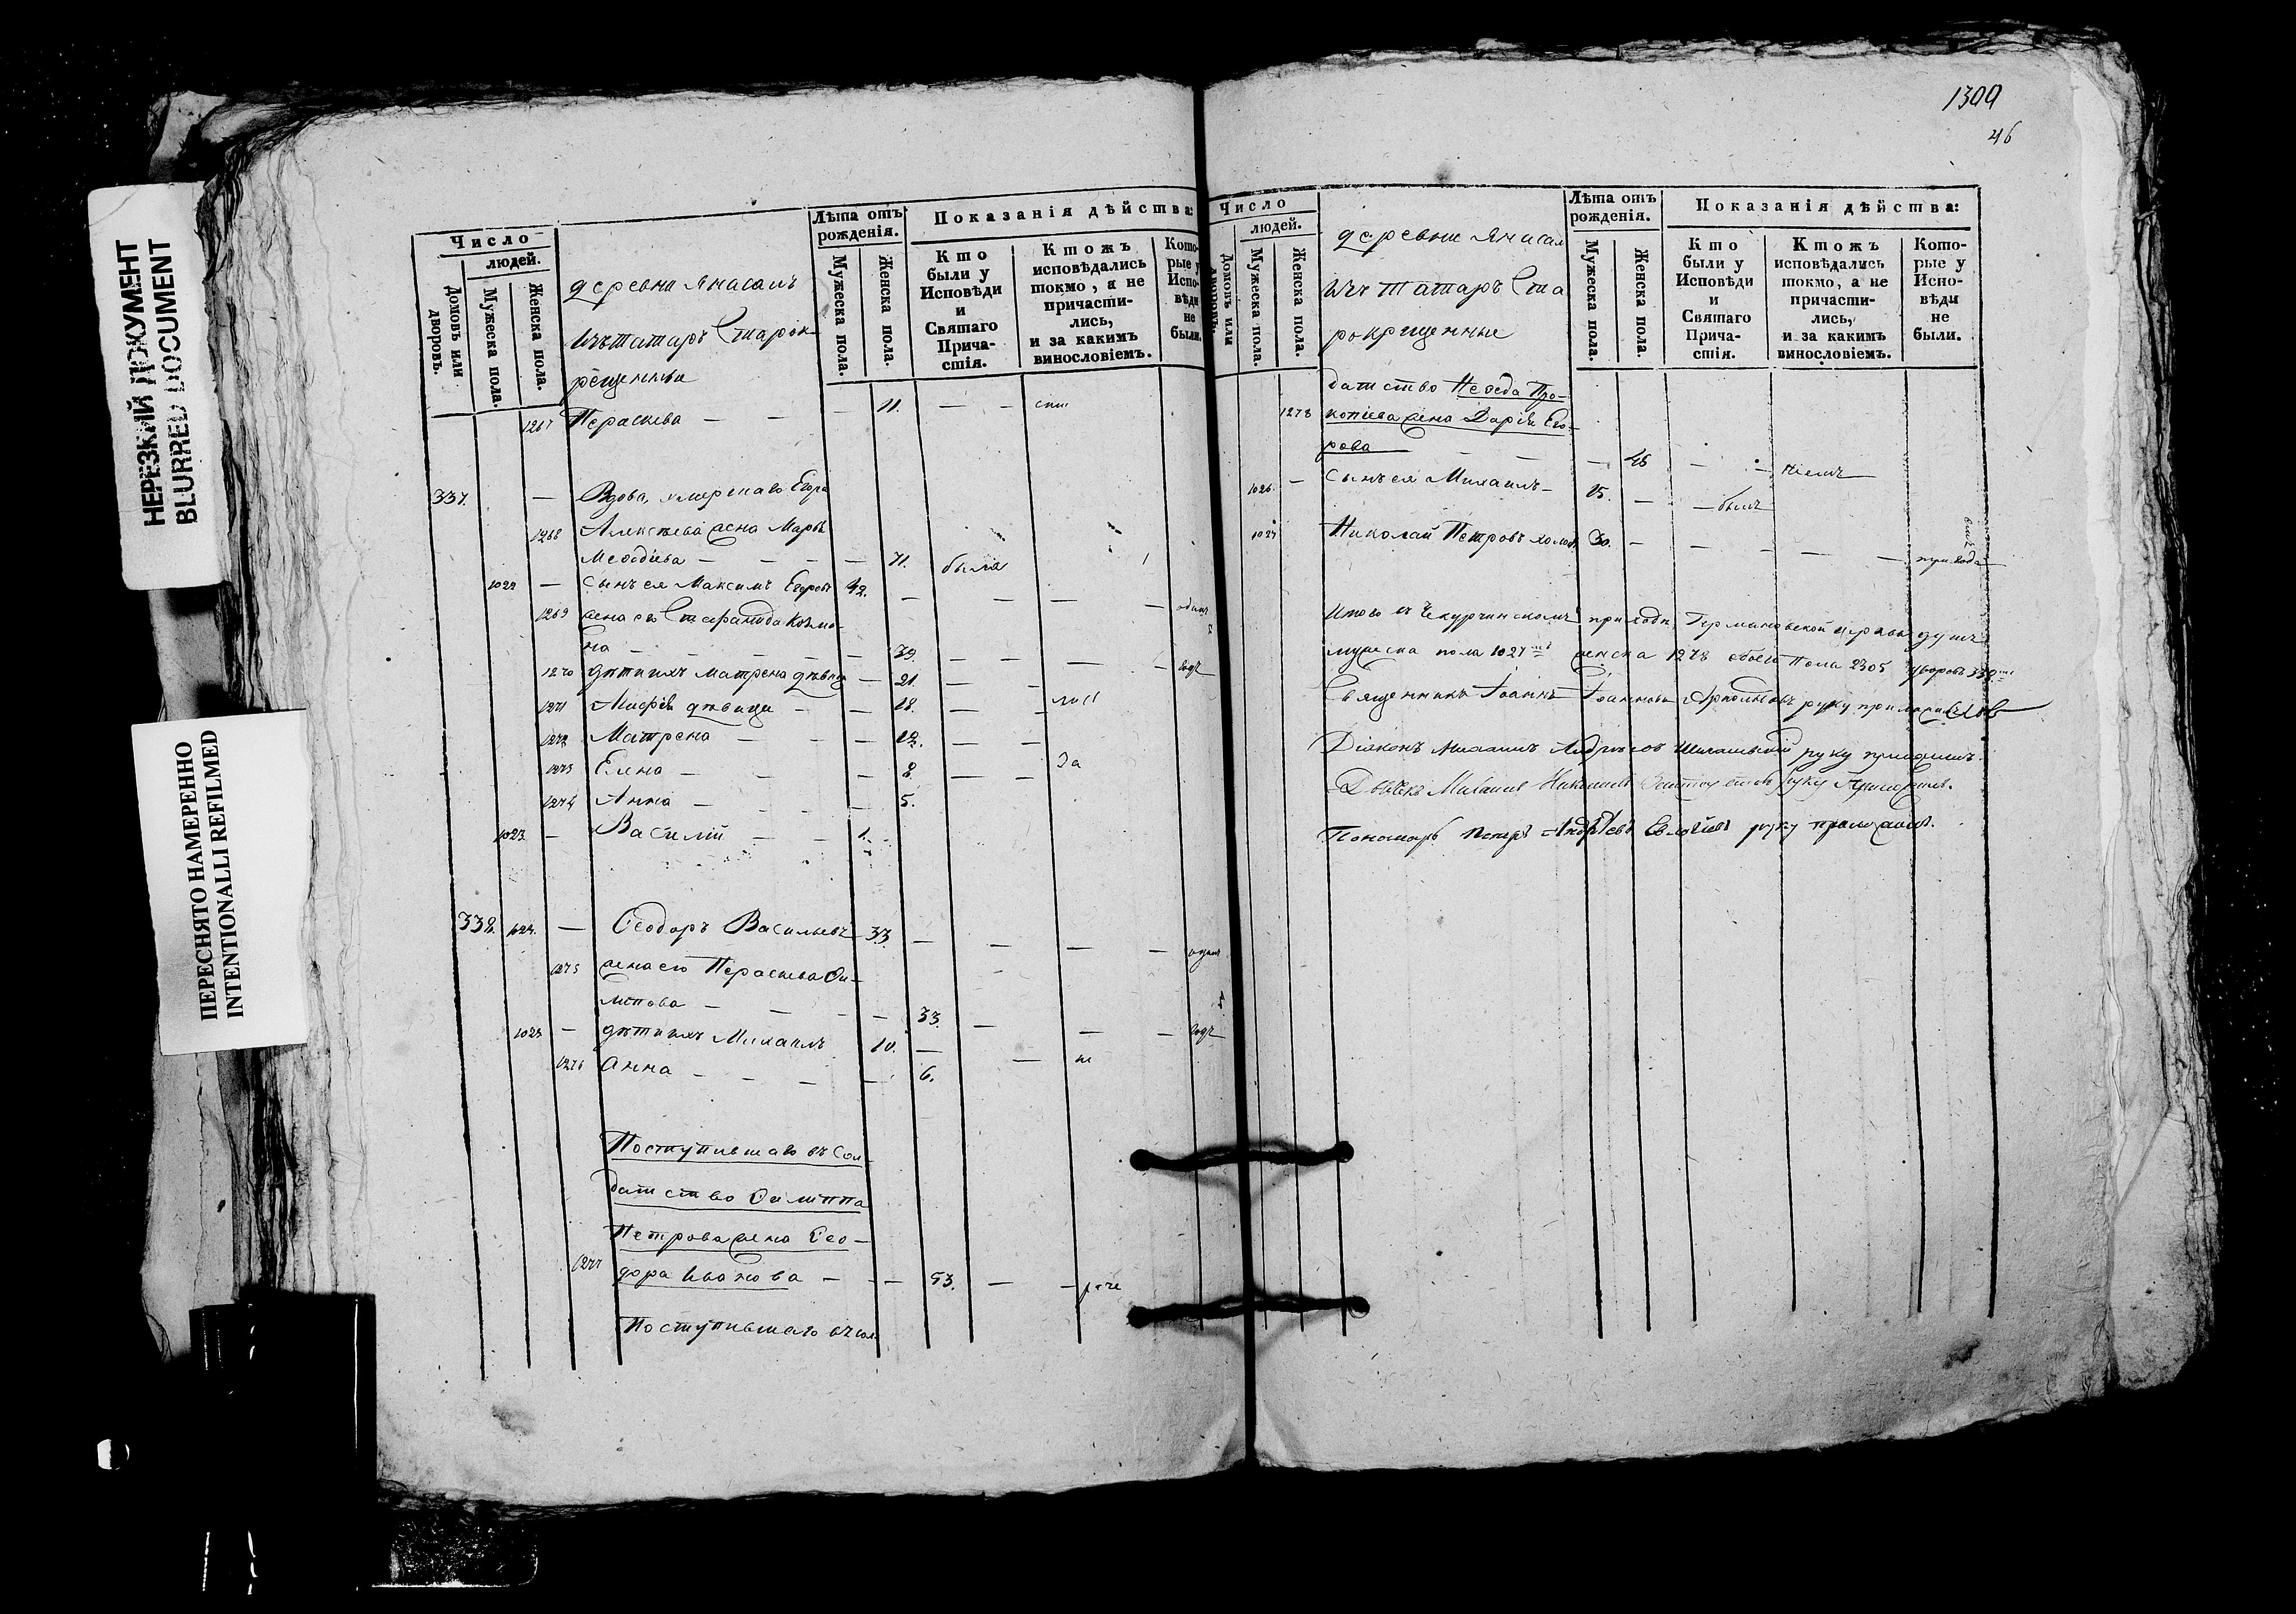 НЕРЕЗКИЙ ДОКУМЕНТ
BLURRED DOCUMENT
ПЕРЕСНЯТО НАМЕРЕННО
INTENTIONALLI REFILMED
Число
людей.
Домовъ или дворовъ.
Мужеска пола.
Женска пола.
деревна Янасалъ
Изъ татаръ Старок-
рещенныя
Лѣта отъ рожденія.
Мужеска пола.
Женска пола.
Показанія дѣйства:
Кто были у Исповѣди и Святаго Причастія.
Ктожъ исповѣдались токмо, а не причастились, и за какимъ винословіемъ.
Которые у Исповѣди не были.
1267 Параскева — — — 11. — —
337. — Вдова, умершаго Егора
1268 Алексѣева жена Марѳа
Меѳодіева — — — — 71. была
1022 — Сынъ ея Максимъ Егоровъ 42. — — — —
1269 жена его Стефанида Козми-
на — — — — — 39. — — — —
1270 дѣти ихъ Матрена дѣвица — 21. — —
1271 дѣвица — — 18. — —
1272 Матрена — — — 12. — —
1273 Елена — — — 8. — — За
1274 Анна — — — 5.
1023. — Василій — — 1.
338. 1024. — Ѳеодоръ Васильевъ 33. — — — —
1275 жена его Параскева Фи-
липова — — — — 33. — — —
1025 — дѣти ихъ Михаилъ 10. — —
1276 Анна — — — — 6.
Поступившаго въ Сол-
датство Филиппа
Петрова жена Ѳео-
1277 дора Иванова — — — 53. — —
Поступившаго въ сол-
1300
46
Число
людей.
Домовъ или дворовъ.
Мужеска пола.
Женска пола.
деревни Янасал
Изъ Татаръ Ста
рокрещенные
Лѣта отъ рожденія.
Мужеска пола.
Женска пола.
Показанія дѣйства:
Кто были у Исповѣди и Святаго Причастія.
Ктожъ исповѣдались токмо, а не причастились, и за какимъ винословіемъ.
Которые у Исповѣди не были.
датство Про-
1278 копіева жена Дарія Его-
рова — — — 46 — —
1026. — Сынъ ея Михаилъ — 15. — — былъ
1027 Николай Петровъ холост 30. — — — — —
приходѣ
Итого въ Чекурчинскомъ приходѣ Германовской церкви душъ
мужеска пола 1027 женска 1278 обоего пола 2305 дворовъ 338
Священникъ Іоаннъ Іоанновъ руку приложилъ
Діаконъ Михаилъ руку приложилъ.
Дьячекъ Михаилъ руку приложилъ.
Пономарь Петръ Андреевъ руку приложилъ.